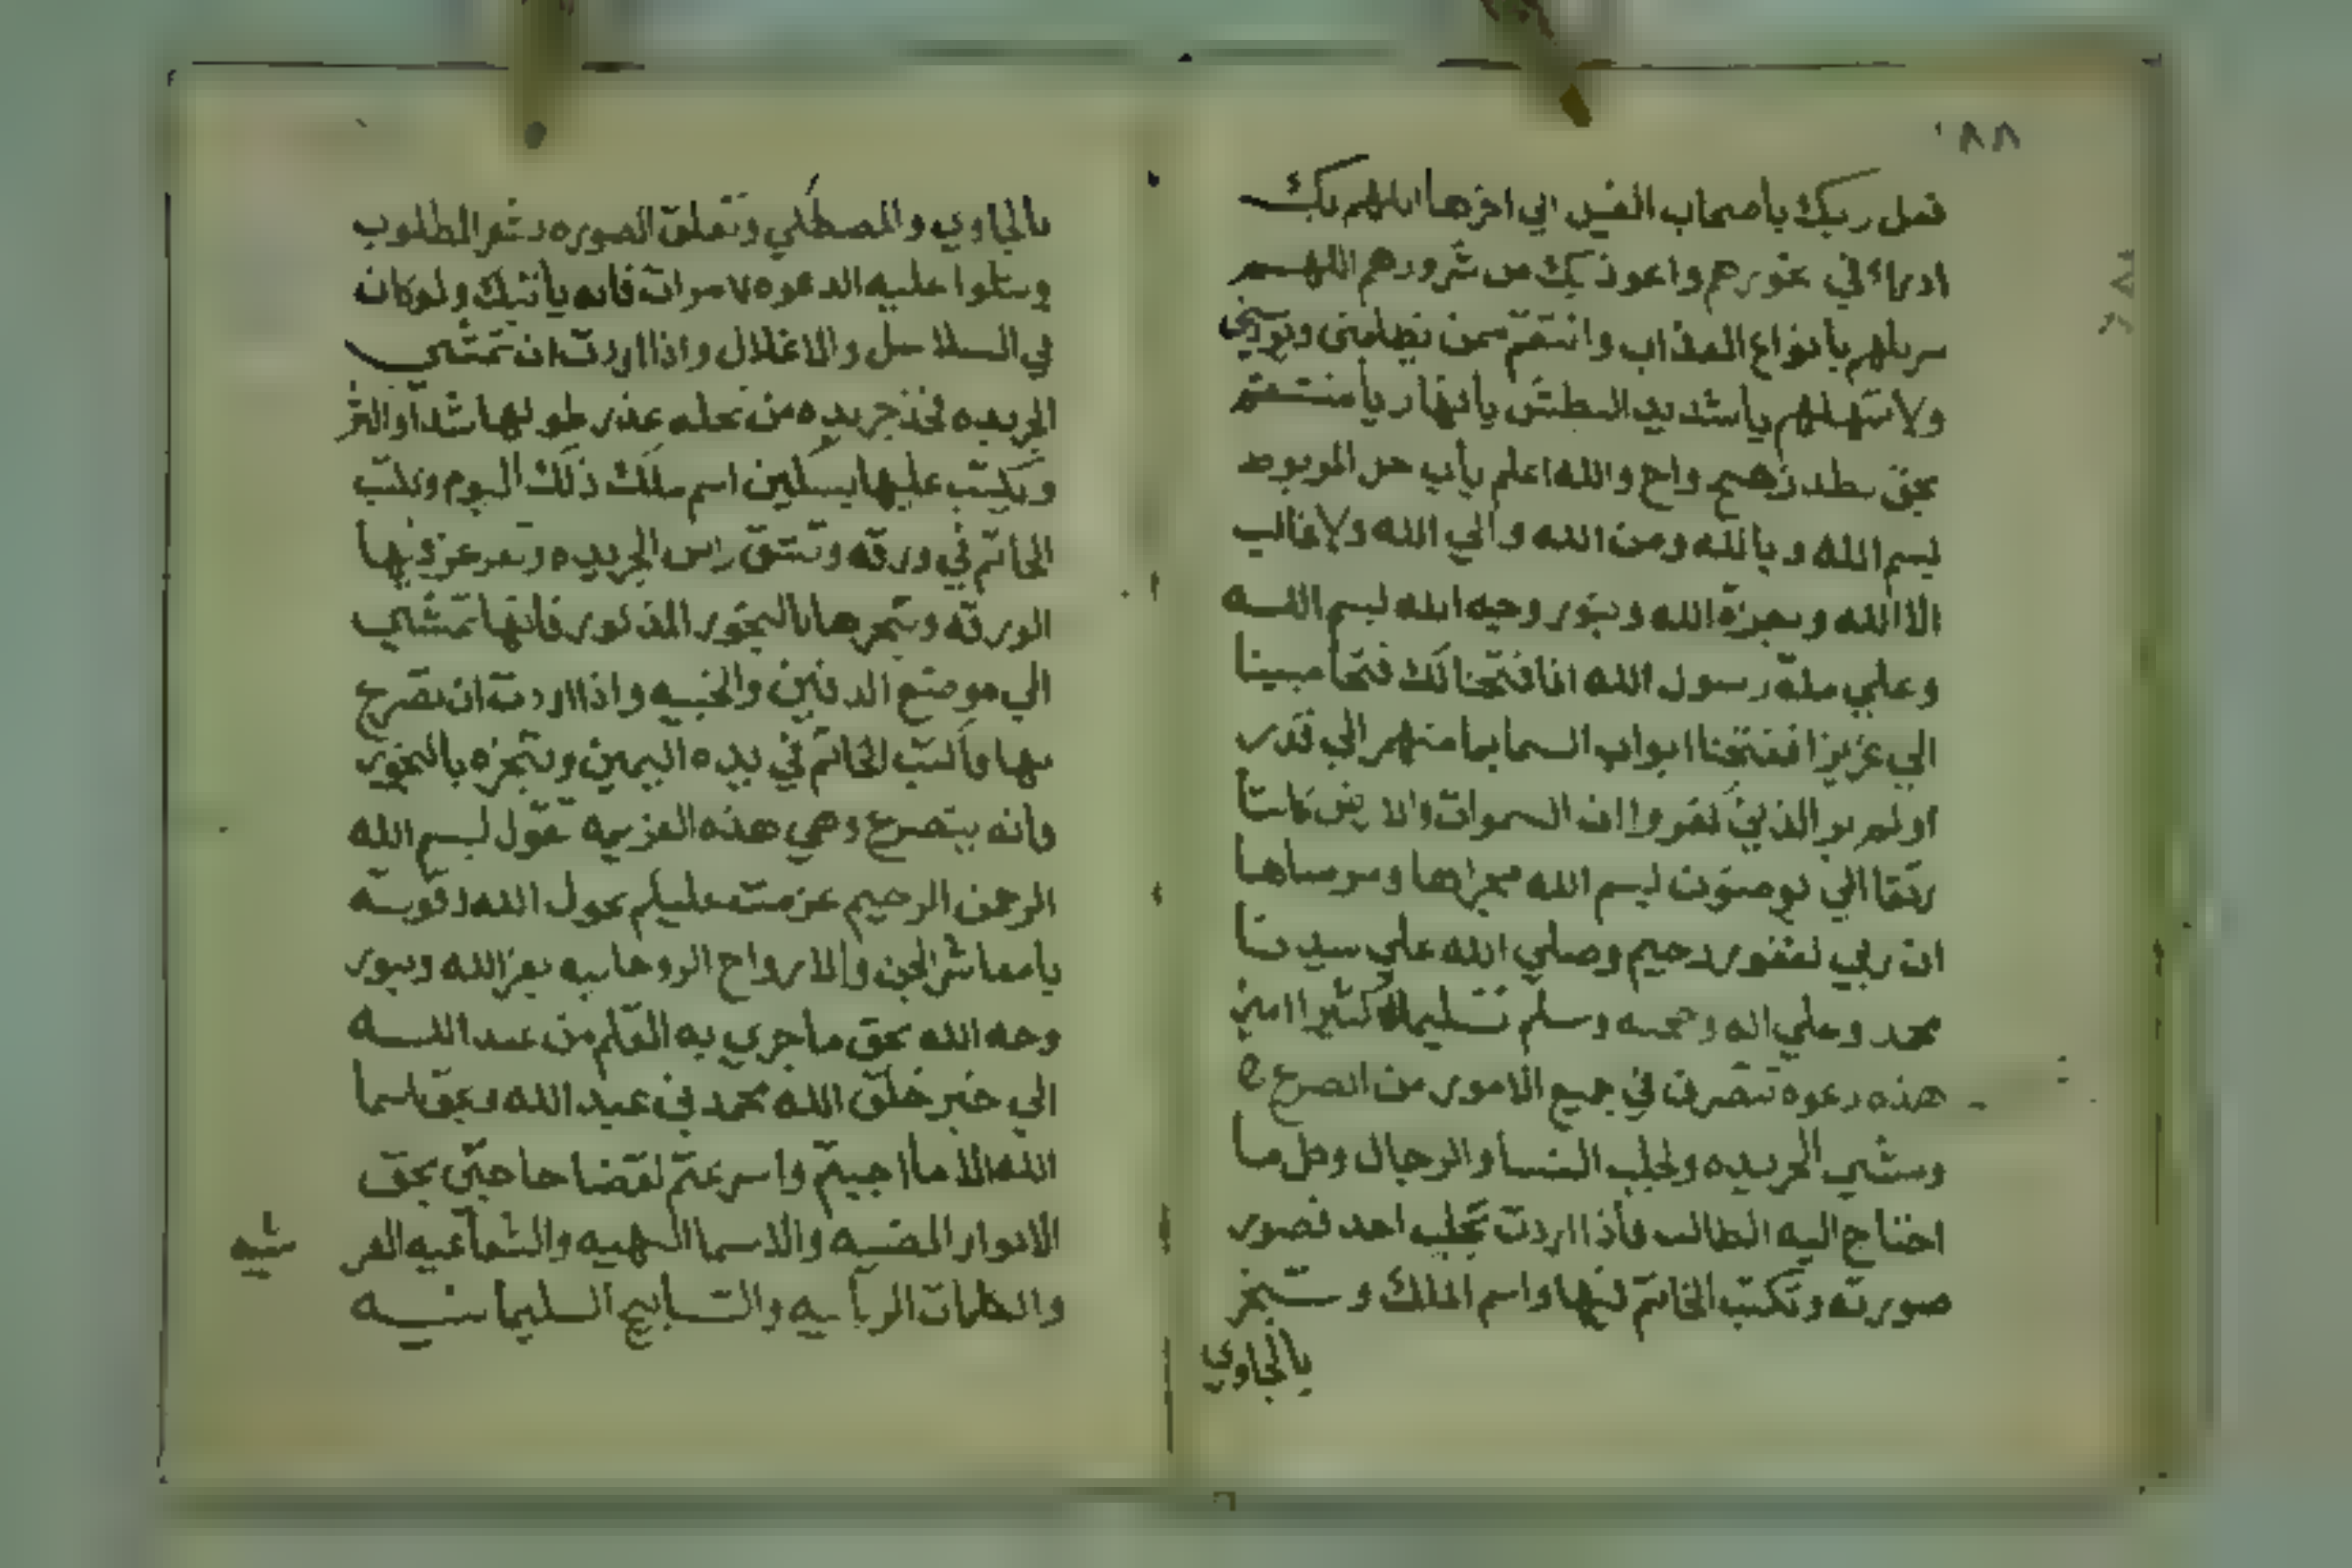 ١٨٨
فعل ربك باصحاب الفيل الي اخرها اللهم بك
ادراء في نحورهم واعوذ بك من شرورهم اللهم
سربلهم بانواع العذاب وانتقم ممن يظلمني ويوذيني
ولا تمهلهم ياشديد البطش ياقهار يامنتقم
بحق بطد زهج واح والله اعلم باب حل المربوط
بسم الله وبالله ومن الله والي الله ولا غالب
الا الله وبعزة الله وبنور وجه الله بسم الله
وعلي ملة رسول الله انا فتحنا لك فتحا مبينا
الي عزيزا ففتحنا ابواب السما بما منهمر الي قدر
اولم ير الذين كفروا ان السموات والارض كانتا
رتقا الي يومنون بسم الله مجراها ومرساها
ان ربي لغفور رحيم وصلي الله علي سيدنا
محمد وعلي اله وصحبه وسلم تسليما كثيرا امين
هذه دعوه تتصرف في جميع الامور من الصرع
ومشي الجريده ولجلب النسا والرجال وكل ما
احتاج اليه الطالب فاذا اردت تجلب احد فصور
صورته وتكتب الخاتم فيها واسم الملك وتبخر
بالجاوي
بالجاوي والمصطكي وتعلق الصوره بشعر المطلوب
وتتلوا عليه الدعوه ٧ مرات فانه ياتيك ولو كان
في السلاسل والاغلال واذا اردت ان تمشي
الجريده فخذ جريده من نخله عذر طولها
وتكتب عليها بسكين اسم ملك ذلك اليوم وتكتب
الخاتم في ورقه وتشق راس الجريده وتغرز فيها
الورقه وتبخرها بالبخور المذكور فانها تمشي
الي موضع الدفين والخبيه واذا اردت ان تصرع
بها واكتب الخاتم في يده اليمين وتبخره بالبخور
وانه ينصرع وهي هذه العزيمه تقول بسم الله
الرحمن الرحيم عزمت عليكم بحول الله وقوته
يامعاشر الجن والارواح الروحانيه بعز الله وبنور
وجه الله بحق ما جري به القلم من عند الله
الي خير خلق الله محمد بن عبد الله وبحق اسما
الله الا ما اجبتم واسرعتم لقضا حاجتي بحق
الانوار المضيه والاسما البهيه والشعاعيه
والكلمات الربانيه والتسابيح السليمانيه